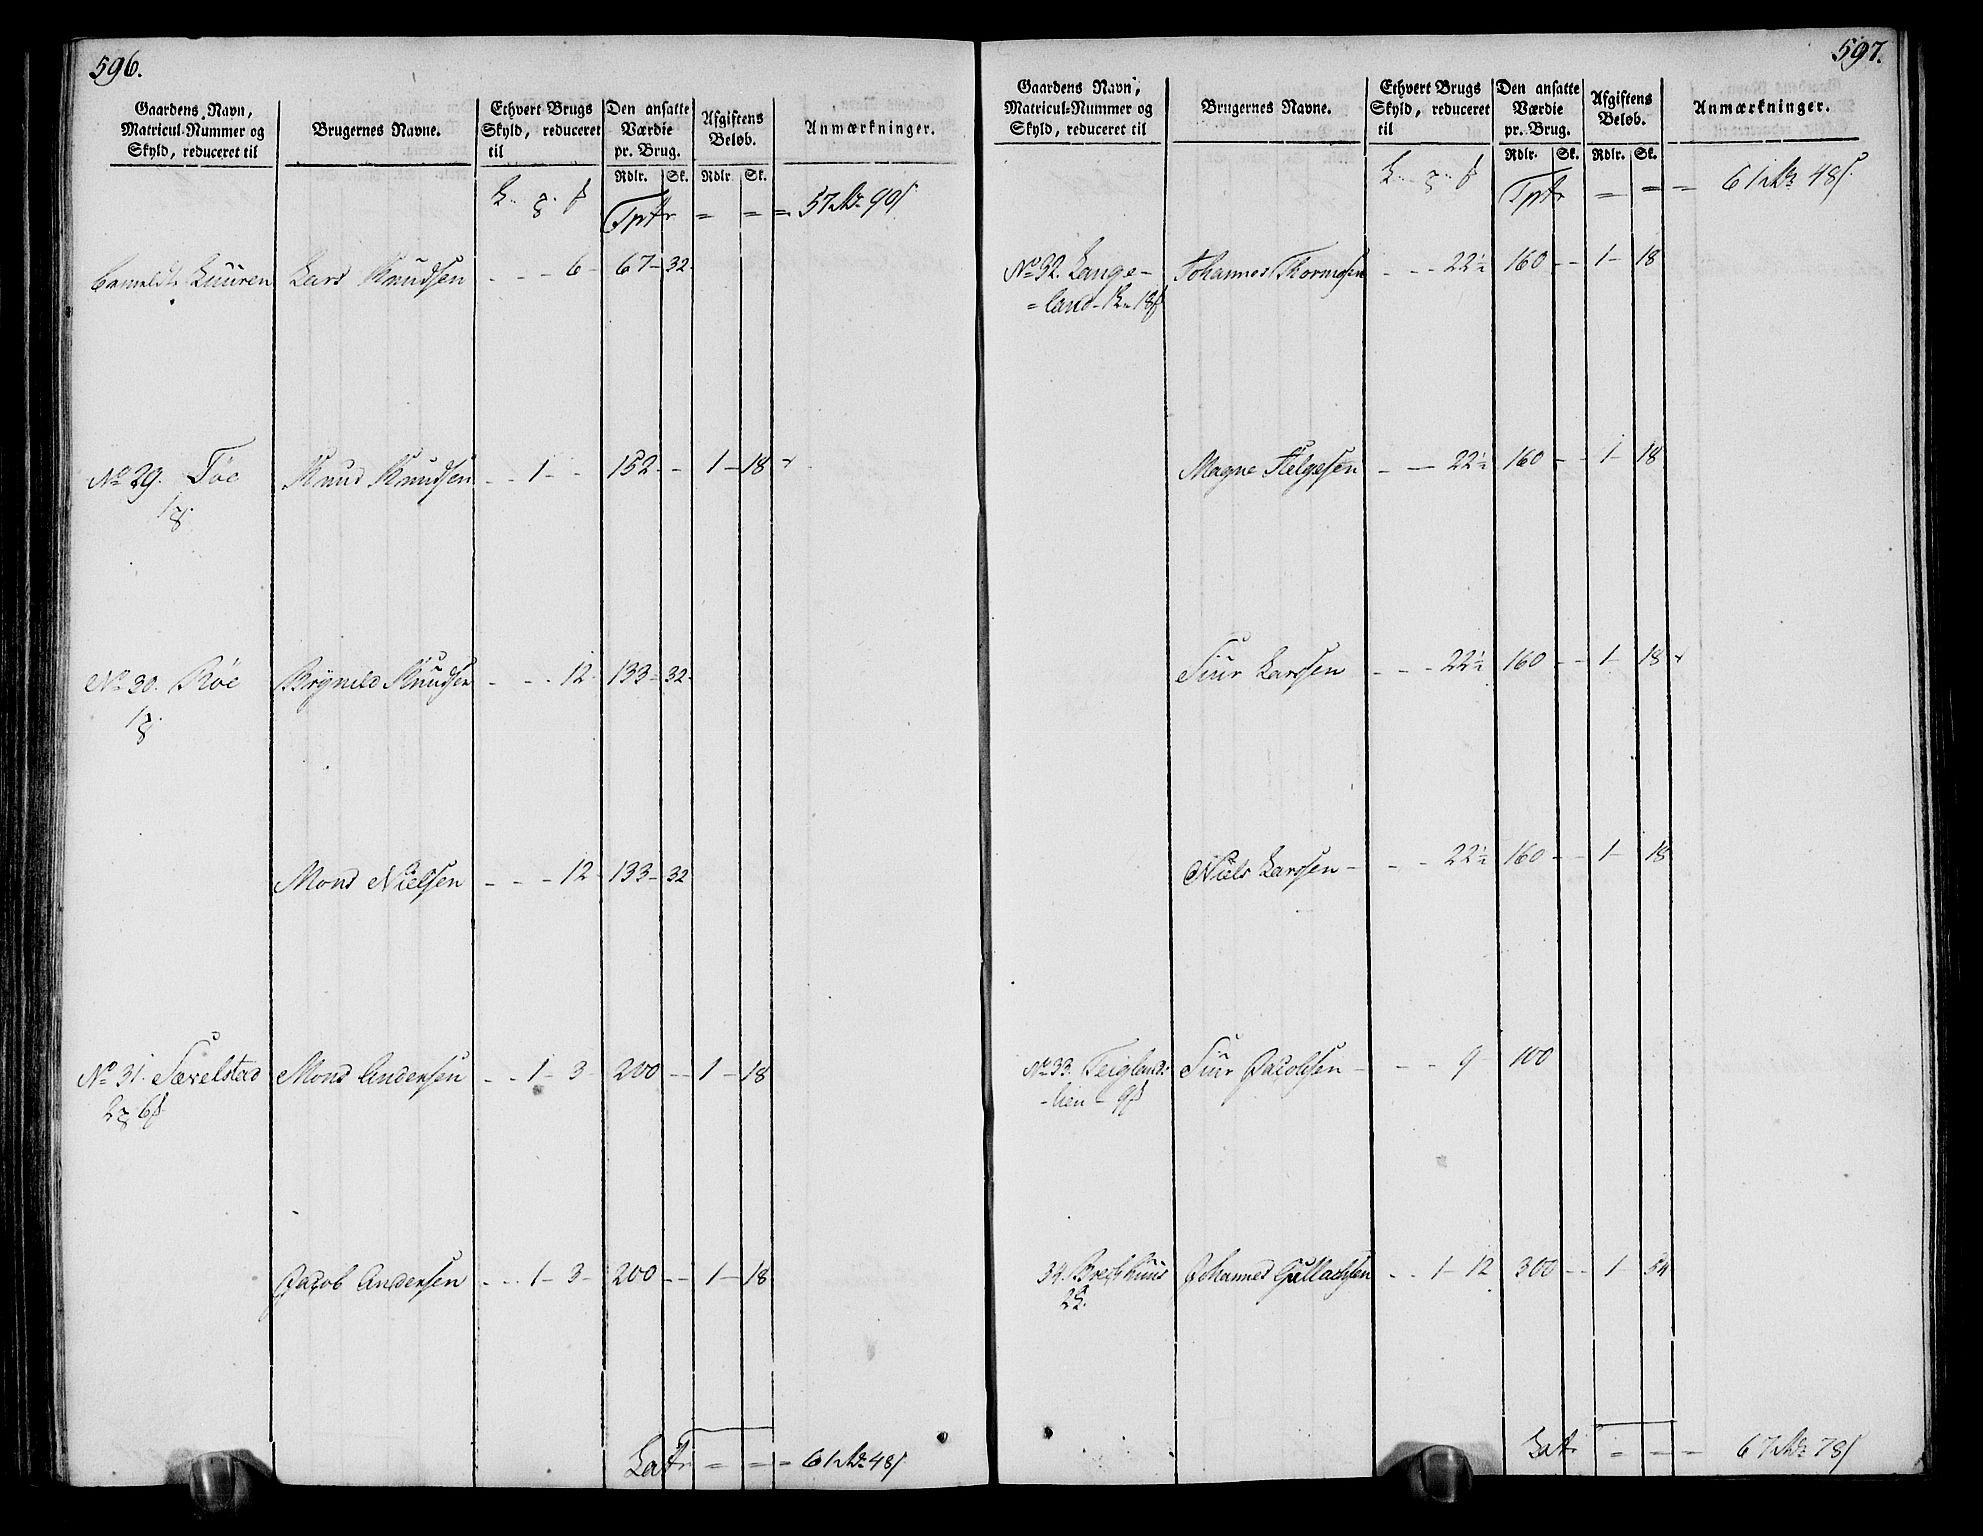 596.
Gaardens Navn, Matricul-Nummer og Skyld, reduceret til | Brugernes Navne. | Ethvert Brugs Skyld, reduceret til | Den ansatte Værdie pr. Brug. | Afgiftens Beløb. | Anmærkninger.
Rdlr. Sk. Rdlr. Sk.
Tptr = = = 57 Rdr 90 s
Lars Knudsen - - - 6 - 67 - 32 -
No 29. Töe Knud Knudsen - - 1 - 152 - - 1 - 18
No 30. Röe Brynild Knudsen - - - 12 - 133 - 32 -
Mons Nielsen - - - 12 - 133 - 32
No 31. Særelstad Mons Andersen - - 1 - 3 - 200 - - 1 - 18
Jacob Andersen - - 1 - 3 - 200 - - 1 - 18
Latr = = = 61 Rdr 48 s
597.
Gaardens Navn, Matricul-Nummer og Skyld, reduceret til | Brugernes Navne. | Ethvert Brugs Skyld, reduceret til | Den ansatte Værdie pr. Brug. | Afgiftens Beløb. | Anmærkninger.
Rdlr. Sk. Rdlr. Sk.
Tptr = = = 61 Rdr 48 s
No 32. Lange- Johannes Thormosen - - - 22½ 160 - - 1 - 18
= land
Magne Helgesen - - 22½ 160 - - 1 - 18
Siur Larsen - - - 22½ 160 - - 1 - 18
Niels Larsen - - - 22½ 160 - - 1 - 18
No 33. Teiglands Siur Jacobsen - - - 9 - 100
- lien - 9
34. Brechhuus Johannes Gullachsen - - 1 - 12 300 - - 1 - 54
Latr = = = 67 Rdr 78 s